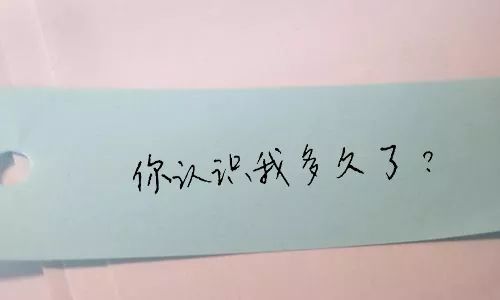 你认识我多久了?